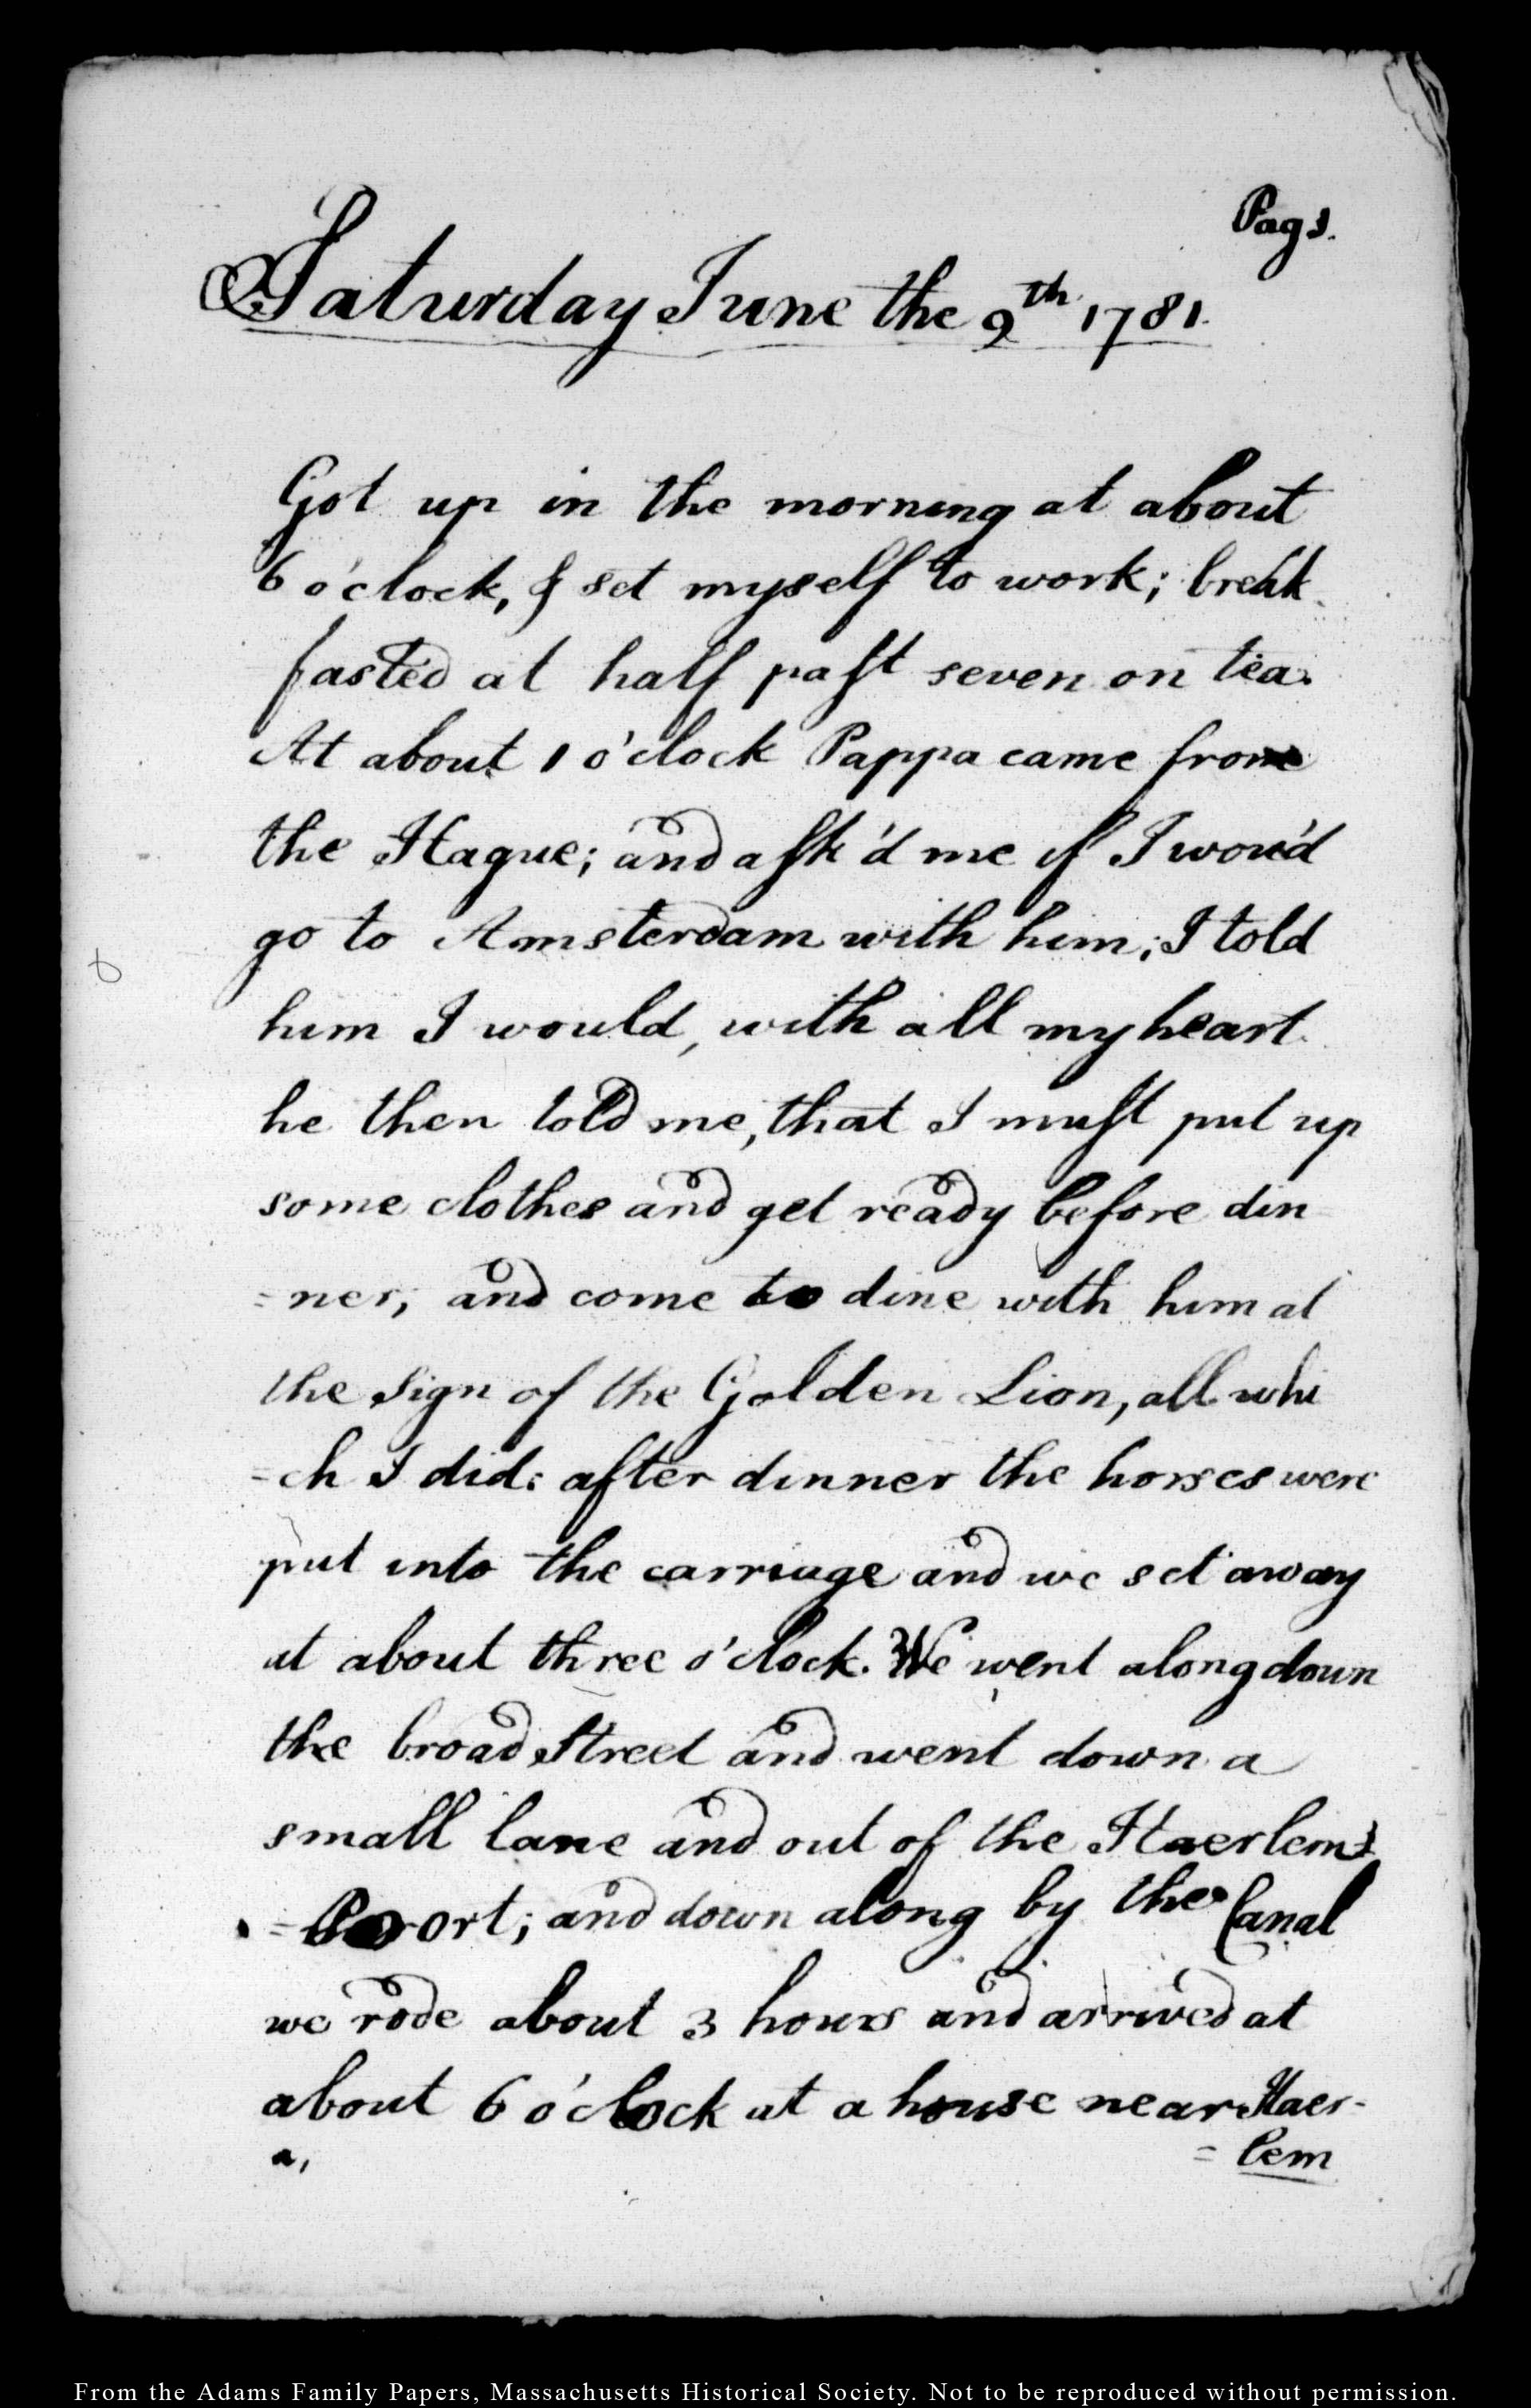 Pag 1.
Saturday June the 9th 1781.
Got up in the morning at about
6 o'clock, & set myself to work; break
fasted at half past seven on tea.
At about 1 o'clock Pappa came from
the Hague; and ask'd me if I wou'd
go to Amsterdam with him; I told
him I would, with all my heart.
he then told me, that I must put up
some clothes and get ready before din
=ner, and come to dine with him at
the sign of the Golden Lion, all whi
=ch I did: after dinner the horses were
put into the carriage and we set away
at about three o'clock. We went along down
the broad Street and went down a
small lane and out of the Haerlem
=Poort; and down along by the Canal
we rode about 3 hours and arrived at
about 6 o'clock at a house near Haer-
=lem
a,
From the Adams Family Papers, Massachusetts Historical Society. Not to be reproduced without permission.